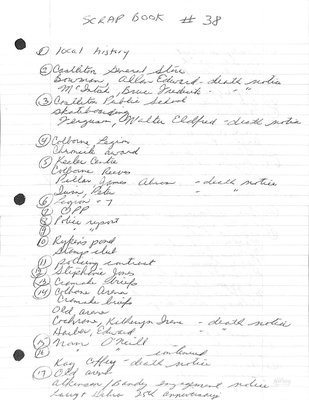 SCRAP BOOK # 38
① local history
② Castleton General Store
Bowman, Allan Edward - death notice
McIntosh, Bruce Frederick - " "
③ Castleton Public School
skateboarding
Ferguson, Walter Clifford - death notice
④ Colborne Legion
Chronicle award
⑤ Keeler Centre
Colborne Reeves
James - death notice
Peter - " "
⑥ Legion - 7
7 OPP
8 Police report
9 " "
10 pond
Stamp club
11 policing contract
12 Stephanie Jones
13 Cramahe briefs
14 Colborne Arena
Cramahe briefs
Old arena
Cochrane, Kathryn Irene - death notice
Harber, Edward - "
15 O'Neill
16 " " continued
Kay Coffey - death notice
17 Old arena
Atkinson / engagement notice
25th anniversary